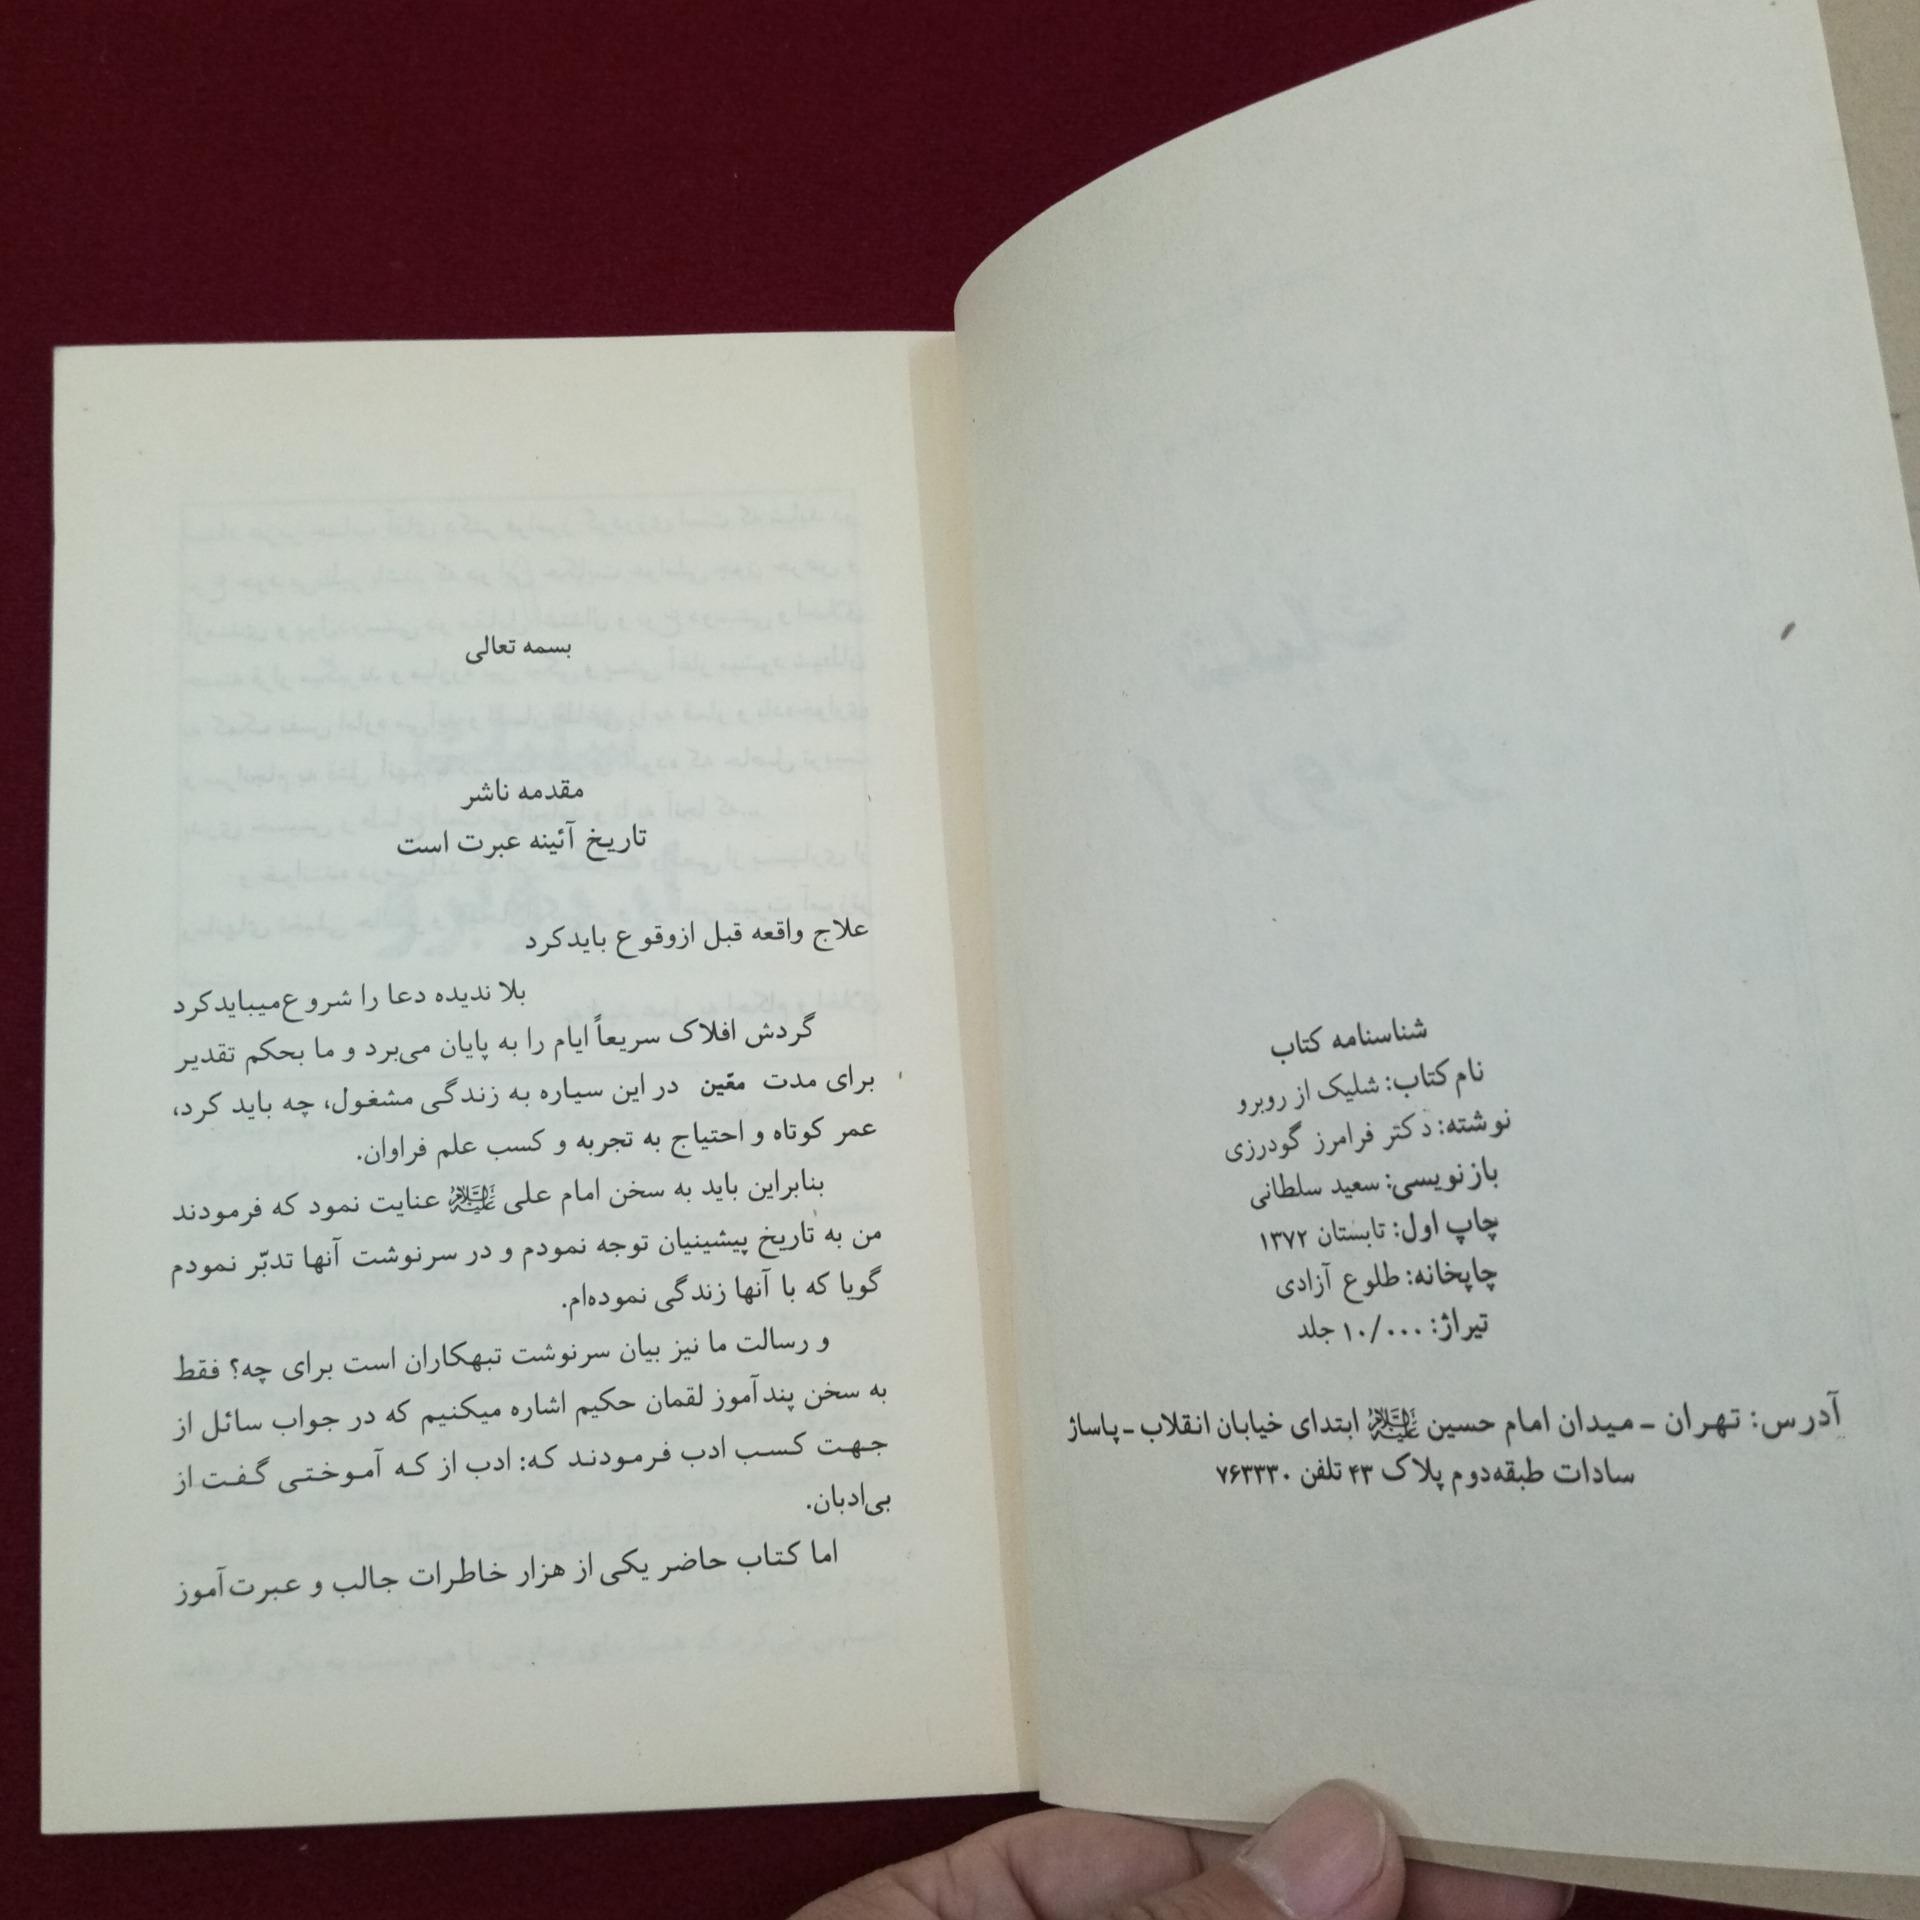 شناسنامه کتاب
نام کتاب: شلیک از روبرو
نوشته: دکتر فرامرز گودرزی
بازنویسی: سعید سلطانی
چاپ اول: تابستان ۱۳۷۲
چاپخانه: طلوع آزادی
تیراژ: ۱۰/۰۰۰ جلد
آدرس: تهران ـ میدان امام حسین علیه‌السلام ابتدای خیابان انقلاب ـ پاساژ
سادات طبقه‌دوم پلاک ۴۳ تلفن ۷۶۳۳۳۰
بسمه تعالی
مقدمه ناشر
تاریخ آئینه عبرت است
علاج واقعه قبل ازوقوع بایدکرد
بلا ندیده دعا را شروع‌میبایدکرد
گردش افلاک سریعاً ایام را به پایان می‌برد و ما بحکم تقدیر
برای مدت معّین در این سیاره به زندگی مشغول، چه باید کرد،
عمر کوتاه و احتیاج به تجربه و کسب علم فراوان.
بنابراین باید به سخن امام علی علیه‌السلام عنایت نمود که فرمودند
من به تاریخ پیشینیان توجه نمودم و در سرنوشت آنها تدبّر نمودم
گویا که با آنها زندگی نموده‌ام.
و رسالت ما نیز بیان سرنوشت تبهکاران است برای چه؟ فقط
به سخن پندآموز لقمان حکیم اشاره میکنیم که در جواب سائل از
جهت کسب ادب فرمودند که: ادب از که آموختی گفت از
بی‌ادبان.
اما کتاب حاضر یکی از هزار خاطرات جالب و عبرت‌آموز